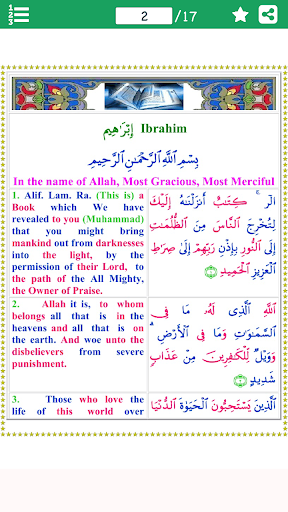 2 /17
إِبْرَاهِيم Ibrahim
بِسْمِ اللَّهِ الرَّحْمَٰنِ الرَّحِيمِ
In the name of Allah, Most Gracious, Most Merciful
1. Alif. Lam. Ra. (This is) a
Book which We have
revealed to you (Muhammad)
that you might bring
mankind out from darknesses
into the light, by the
permission of their Lord, to
the path of the All Mighty,
the Owner of Praise.
الٓر ۚ كِتَٰبٌ أَنزَلْنَٰهُ إِلَيْكَ
لِتُخْرِجَ ٱلنَّاسَ مِنَ ٱلظُّلُمَٰتِ
إِلَى ٱلنُّورِ بِإِذْنِ رَبِّهِمْ إِلَىٰ صِرَٰطِ
ٱلْعَزِيزِ ٱلْحَمِيدِ ١
2. Allah it is, to whom
belongs all that is in the
heavens and all that is on
the earth. And woe unto the
disbelievers from severe
punishment.
ٱللَّهِ ٱلَّذِى لَهُۥ مَا فِى
ٱلسَّمَٰوَٰتِ وَمَا فِى ٱلْأَرْضِ ۗ
وَوَيْلٌ لِّلْكَٰفِرِينَ مِنْ عَذَابٍ
شَدِيدٍ ٢
3. Those who love the
life of this world over
ٱلَّذِينَ يَسْتَحِبُّونَ ٱلْحَيَوٰةَ ٱلدُّنْيَا